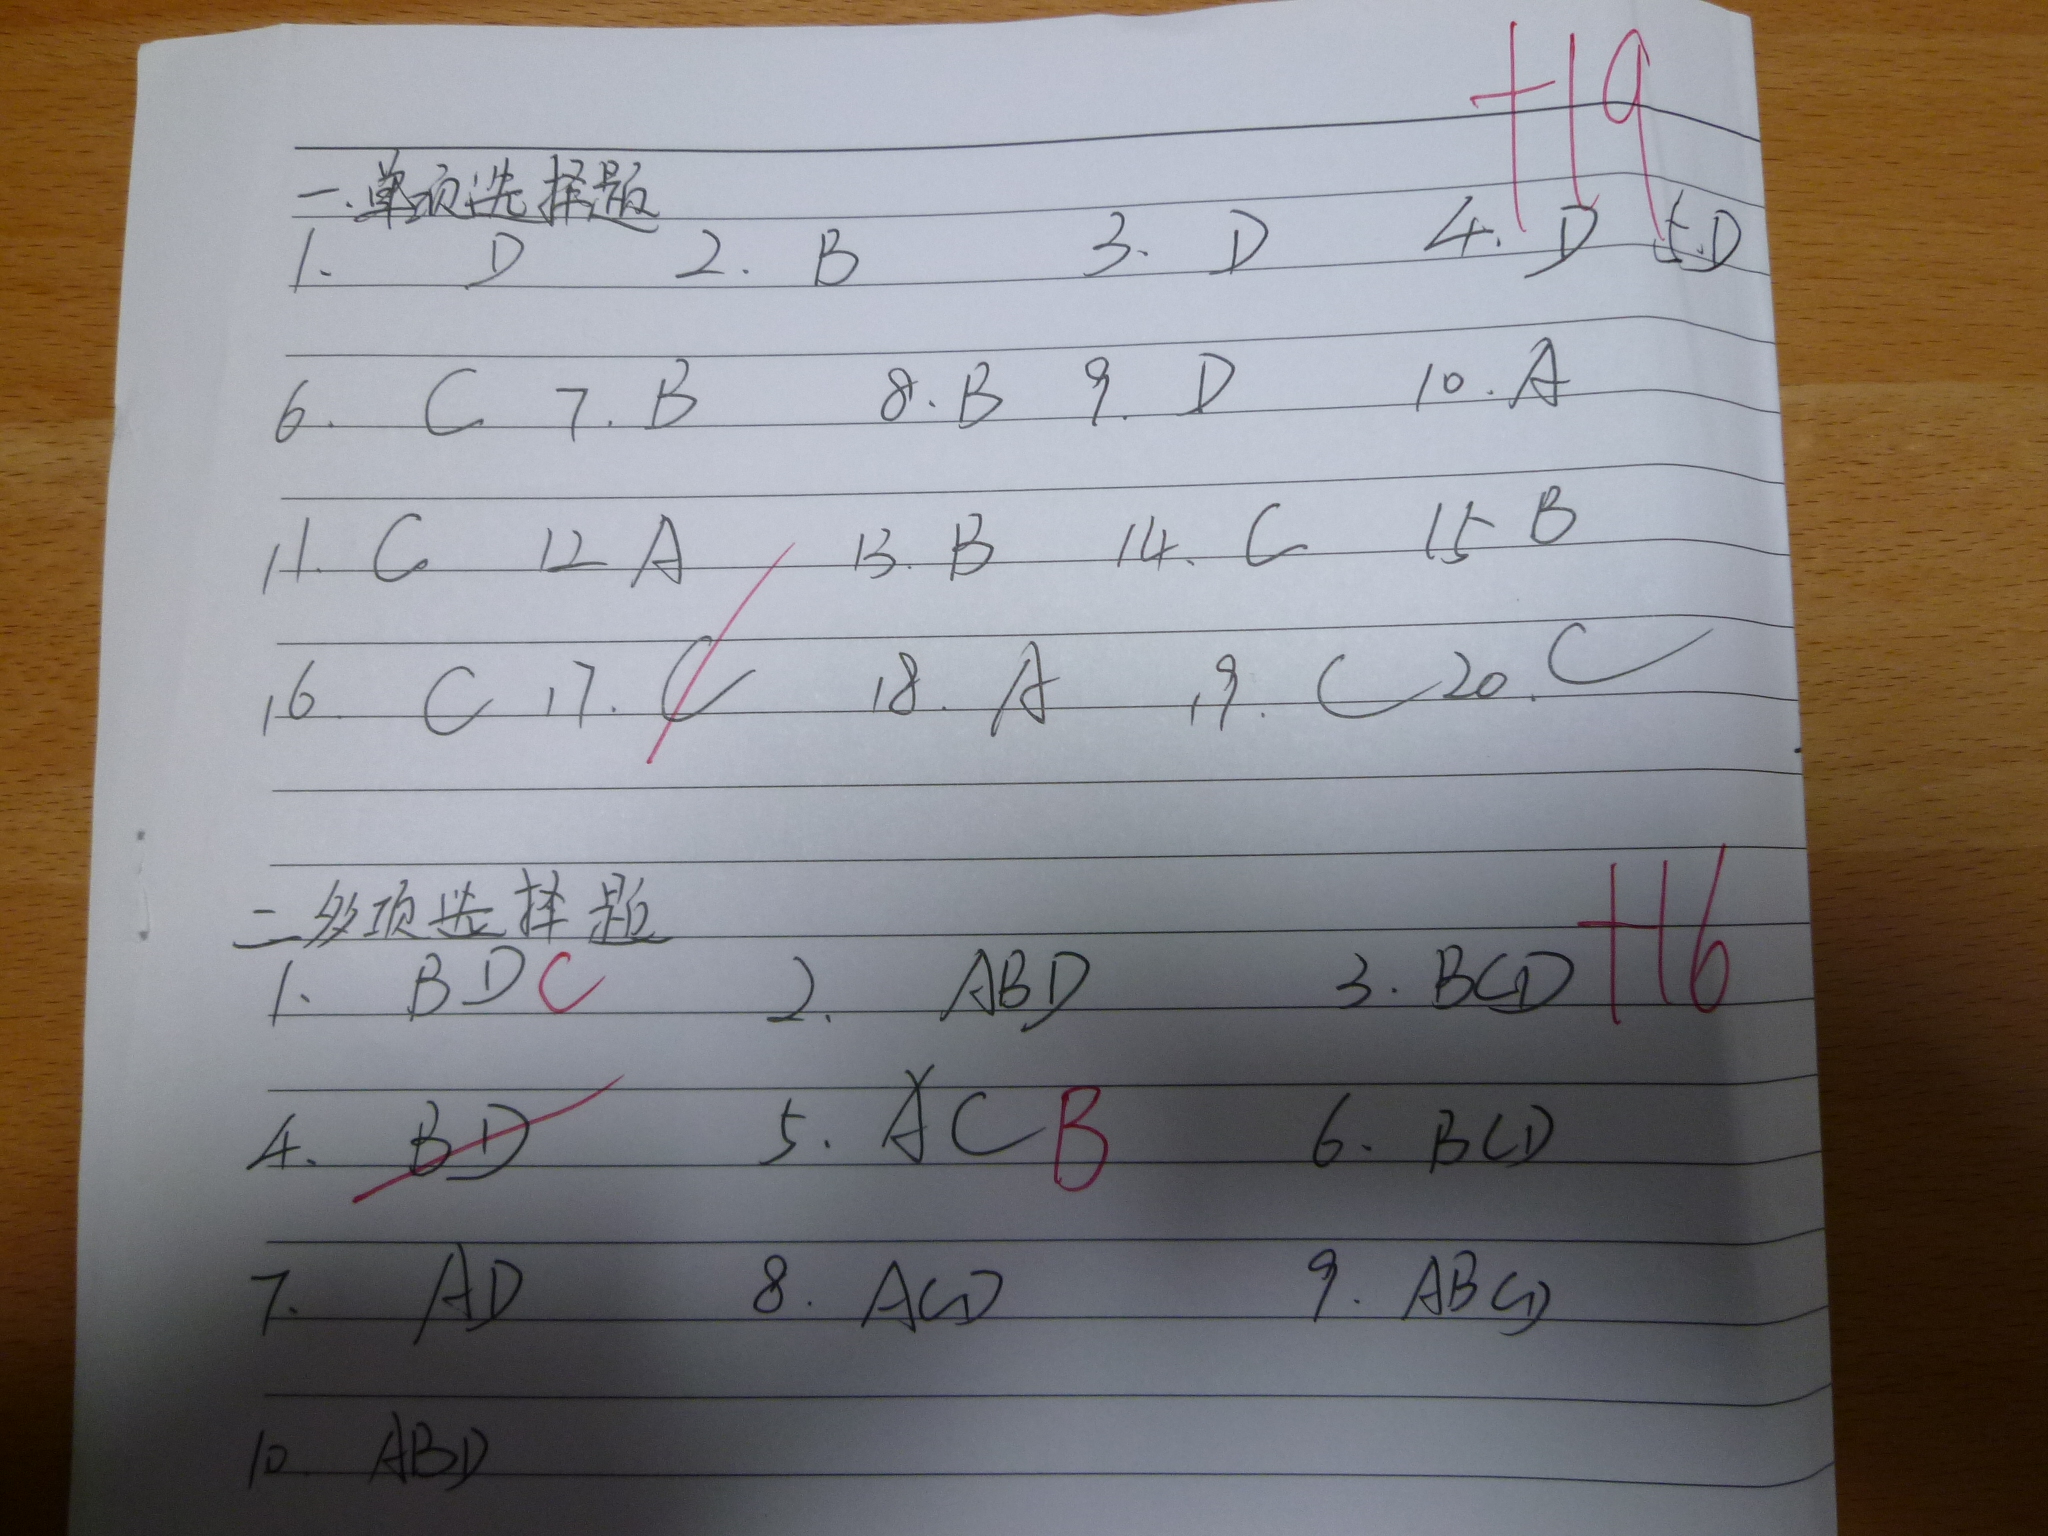 +19
一.单项选择题
1. D 2. B 3. D 4. D 5.D
6. C 7. B 8. B 9. D 10. A
11. C 12 A 13. B 14. C 15 B
16. C 17. C 18. A 19. C 20. C
二多项选择题 +16
1. BDC 2. ABD 3. BCD
4. BD 5. AC B 6. BCD
7. AD 8. ACD 9. ABCD
10. ABD